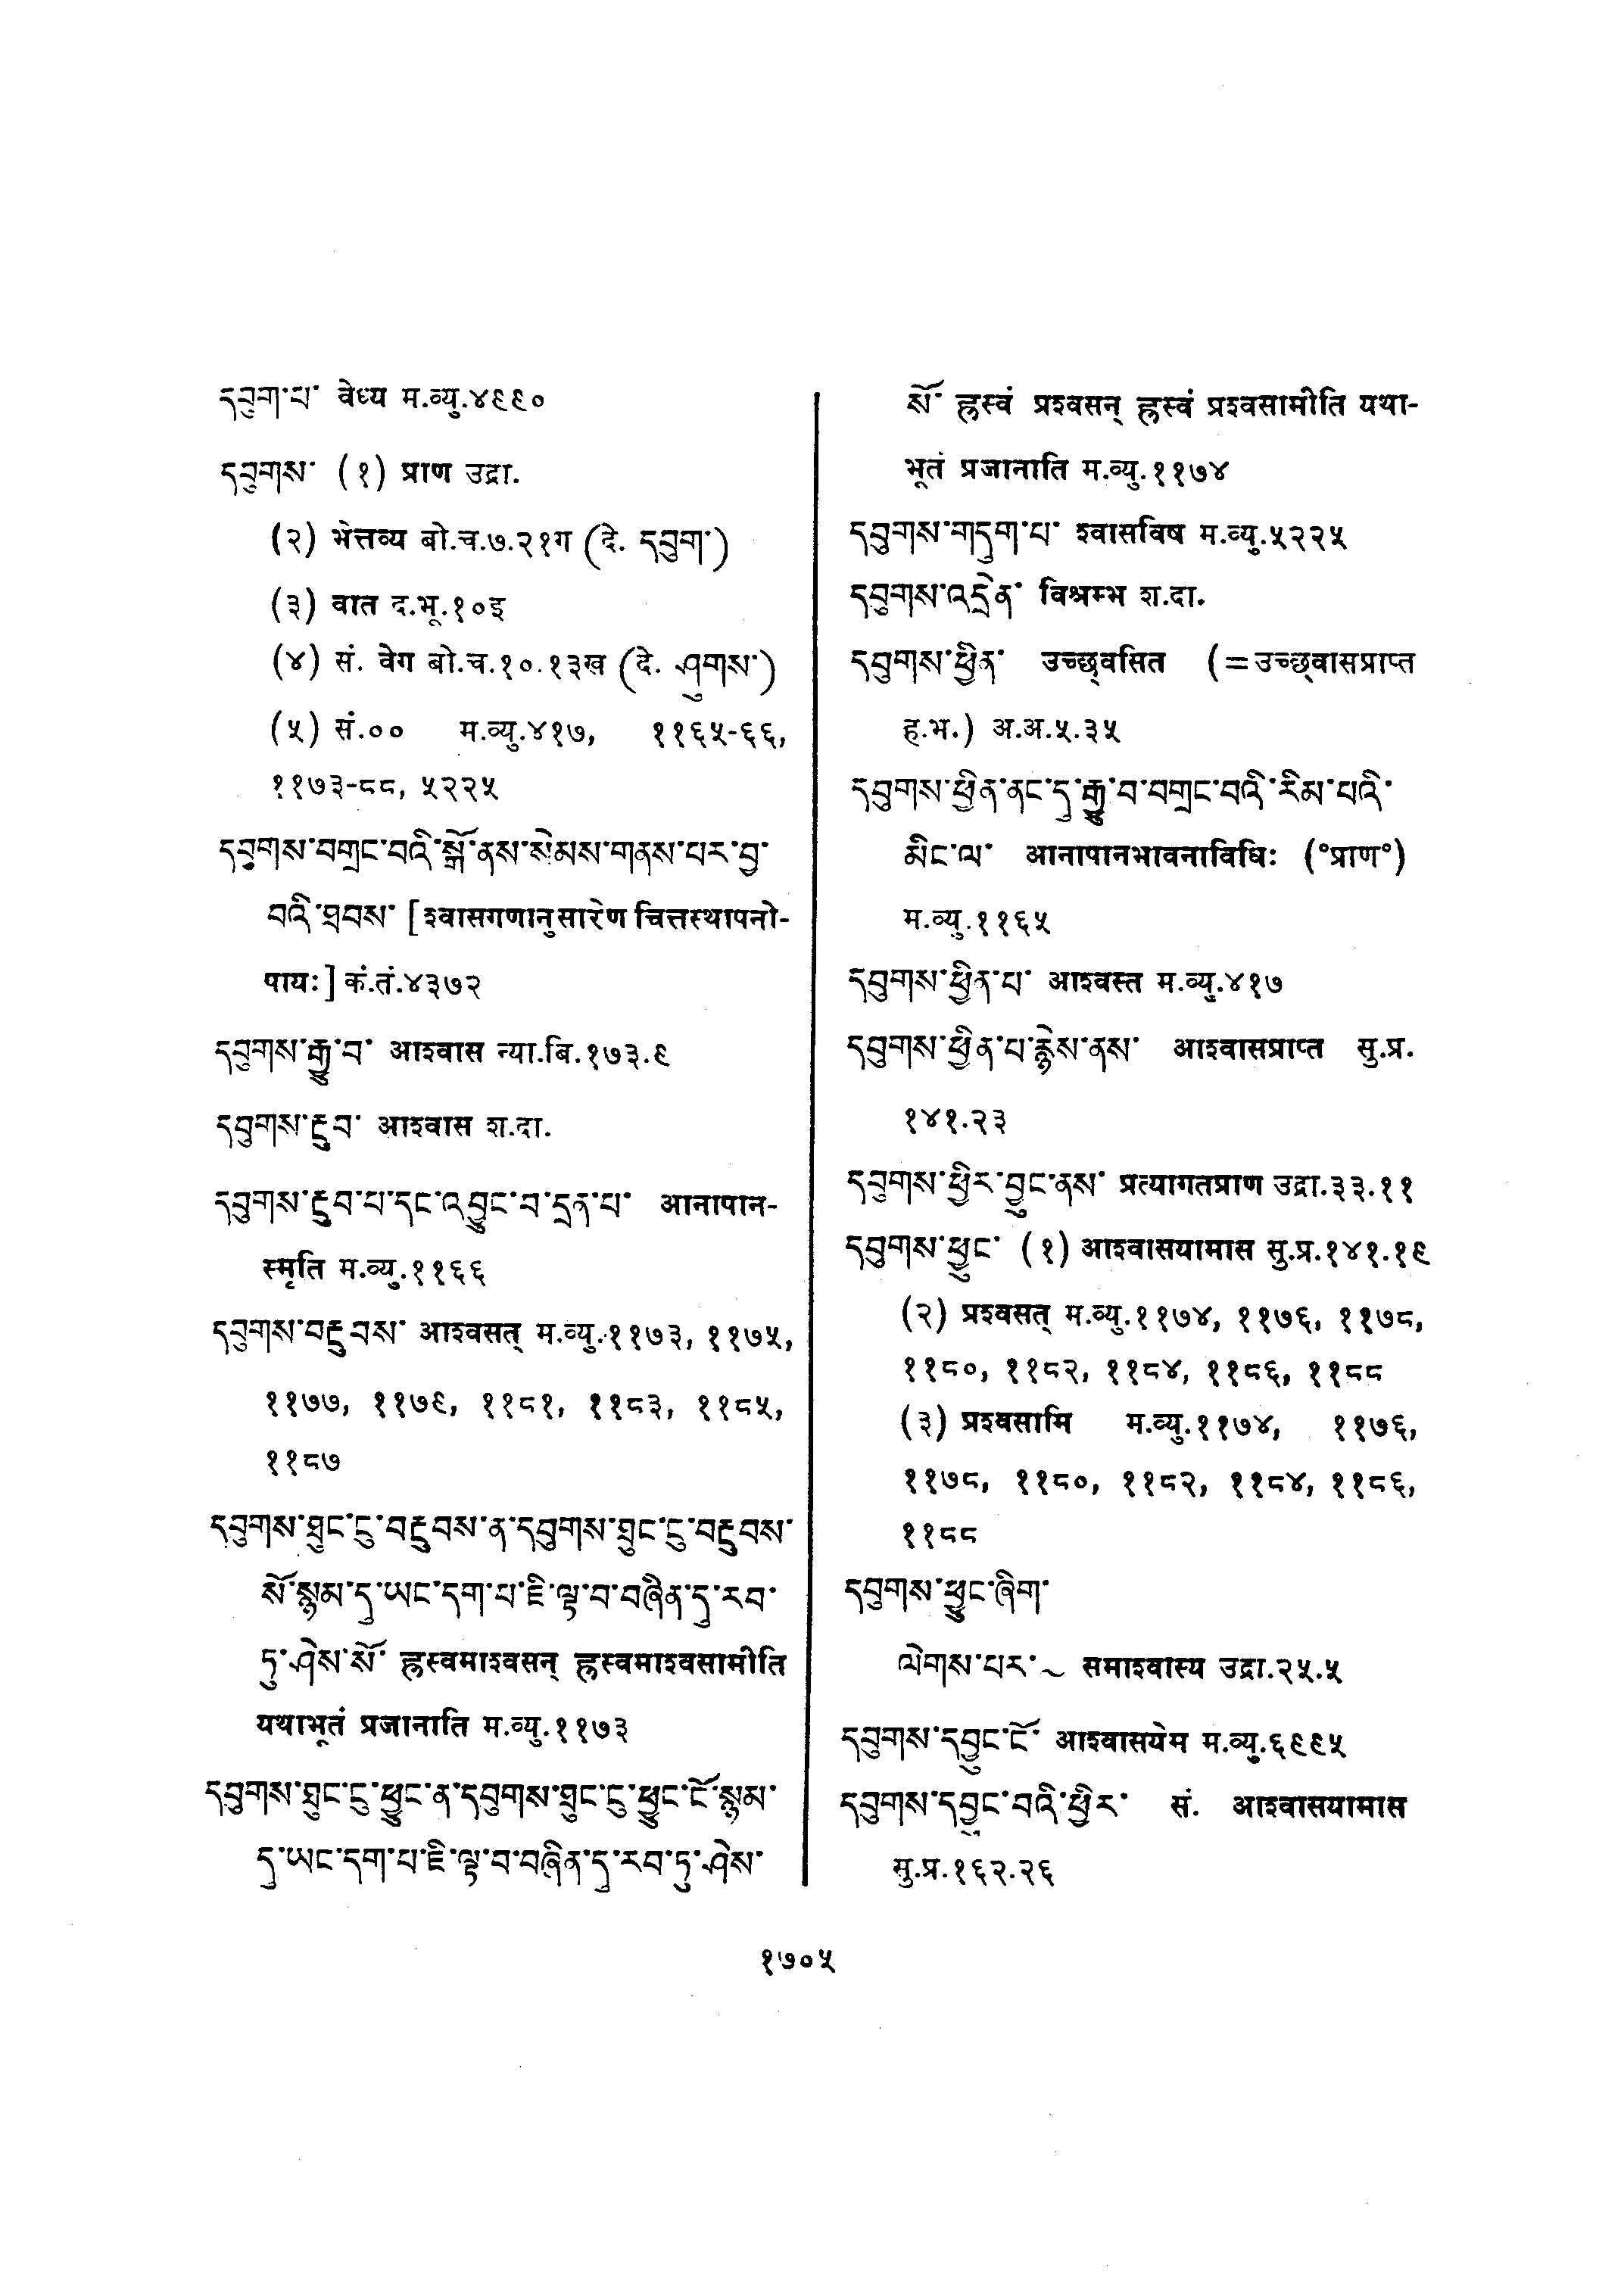 དབུག་པ་ वेध्य म.व्यु.४९९०
དབུགས་ (१) प्राण उद्रा.
(२) भेत्तव्य बो.च.७.२१ग (दे. དབུག་)
(३) वात द.भू.१०इ
(४) सं. वेग बो.च.१०.१३ख (दे. ཤུགས་)
(५) सं.०० म.व्यु.४१७, ११६५-६६,
११७३-८८, ५२२५
དབུགས་བགྲང་བའི་སྒོ་ནས་སེམས་གནས་པར་བྱ་
བའི་ཐབས་ [श्वासगणानुसारेण चित्तस्थापनो-
पायः] कं.तं.४३७२
དབུགས་རྒྱུ་བ་ आश्वास न्या.बि.१७३.९
དབུགས་རྔུབ་ आश्वास श.दा.
དབུགས་རྔུབ་པ་དང་འབྱུང་བ་དྲན་པ་ आनापान-
स्मृति म.व्यु.११६६
དབུགས་བརྔུབས་ आश्वसत् म.व्यु.११७३, ११७५,
११७७, ११७९, ११८१, ११८३, ११८५,
११८७
དབུགས་ཐུང་ངུ་བརྔུབས་ན་དབུགས་ཐུང་ངུ་བརྔུབས་
སོ་སྙམ་དུ་ཡང་དག་པ་ཇི་ལྟ་བ་བཞིན་དུ་རབ་
ཏུ་ཤེས་སོ་ ह्रस्वमाश्वसन् ह्रस्वमाश्वसामीति
यथाभूतं प्रजानाति म.व्यु.११७३
དབུགས་ཐུང་ངུ་ཕྱུང་ན་དབུགས་ཐུང་ངུ་ཕྱུང་ངོ་སྙམ་
དུ་ཡང་དག་པ་ཇི་ལྟ་བ་བཞིན་དུ་རབ་ཏུ་ཤེས་
སོ་ ह्रस्वं प्रश्वसन् ह्रस्वं प्रश्वसामीति यथा-
भूतं प्रजानाति म.व्यु.११७४
དབུགས་གདུག་པ་ श्वासविष म.व्यु.५२२५
དབུགས་འདྲེན་ विश्रम्भ श.दा.
དབུགས་ཕྱིན་ उच्छ्वसित (=उच्छ्वासप्राप्त
ह.भ.) अ.अ.५.३५
དབུགས་ཕྱིན་ནང་དུ་རྒྱུ་བ་བགྲང་བའི་རིམ་པའི་
མིང་ལ་ आनापानभावनाविधिः (°प्राण°)
म.व्यु.११६५
དབུགས་ཕྱིན་པ་ आश्वस्त म.व्यु.४१७
དབུགས་ཕྱིན་པ་རྙེས་ནས་ आश्वासप्राप्त सु.प्र.
१४१.२३
དབུགས་ཕྱིར་བྱུང་ནས་ प्रत्यागतप्राण उद्रा.३३.११
དབུགས་ཕྱུང་ (१) आश्वासयामास सु.प्र.१४१.१९
(२) प्रश्वसत् म.व्यु.११७४, ११७६, ११७८,
११८०, ११८२, ११८४, ११८६, ११८८
(३) प्रश्वसामि म.व्यु.११७४, ११७६,
११७८, ११८०, ११८२, ११८४, ११८६,
११८८
དབུགས་ཕྱུང་ཞིག་
ལེགས་པར་~ समाश्वास्य उद्रा.२५.५
དབུགས་དབྱུང་ངོ་ आश्वासयेम म.व्यु.६९९५
དབུགས་དབྱུང་བའི་ཕྱིར་ सं. आश्वासयामास
सु.प्र.१६२.२६
१७०५